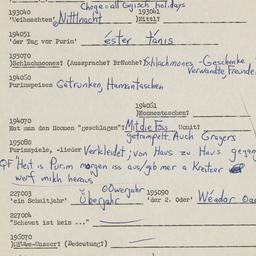 Choge = all Gyisch holidays
193040 193041
'Weihnachten' Nittlnacht )Nittl?
194051
'der Tag vor Purim' ester tānis
195070
)Schlachmones? (Aussprache? Bräuche?) Schlachmones - Geschenke
Verwandte, Freunde
194050
Purimspeisen Getrunken, Hamantaschen
194061
)Homentaschen?
194070
Hat man den Homen "geschlagen"? Mit die Füss Womit?
getrampelt. Auch Gragers
195080
Purimspiele, -lieder Verkleidet, von Haus zu Haus gegan
QF "Heit is Purim morgen iss aus/geb mer a Kreitzer
werf mich heraus
227003 195090
'ein Schaltjahr' Überjahr 'der 2. Oder' Weador
227004
"Schewet ist kein ..."
196070
(Bedeutung?)